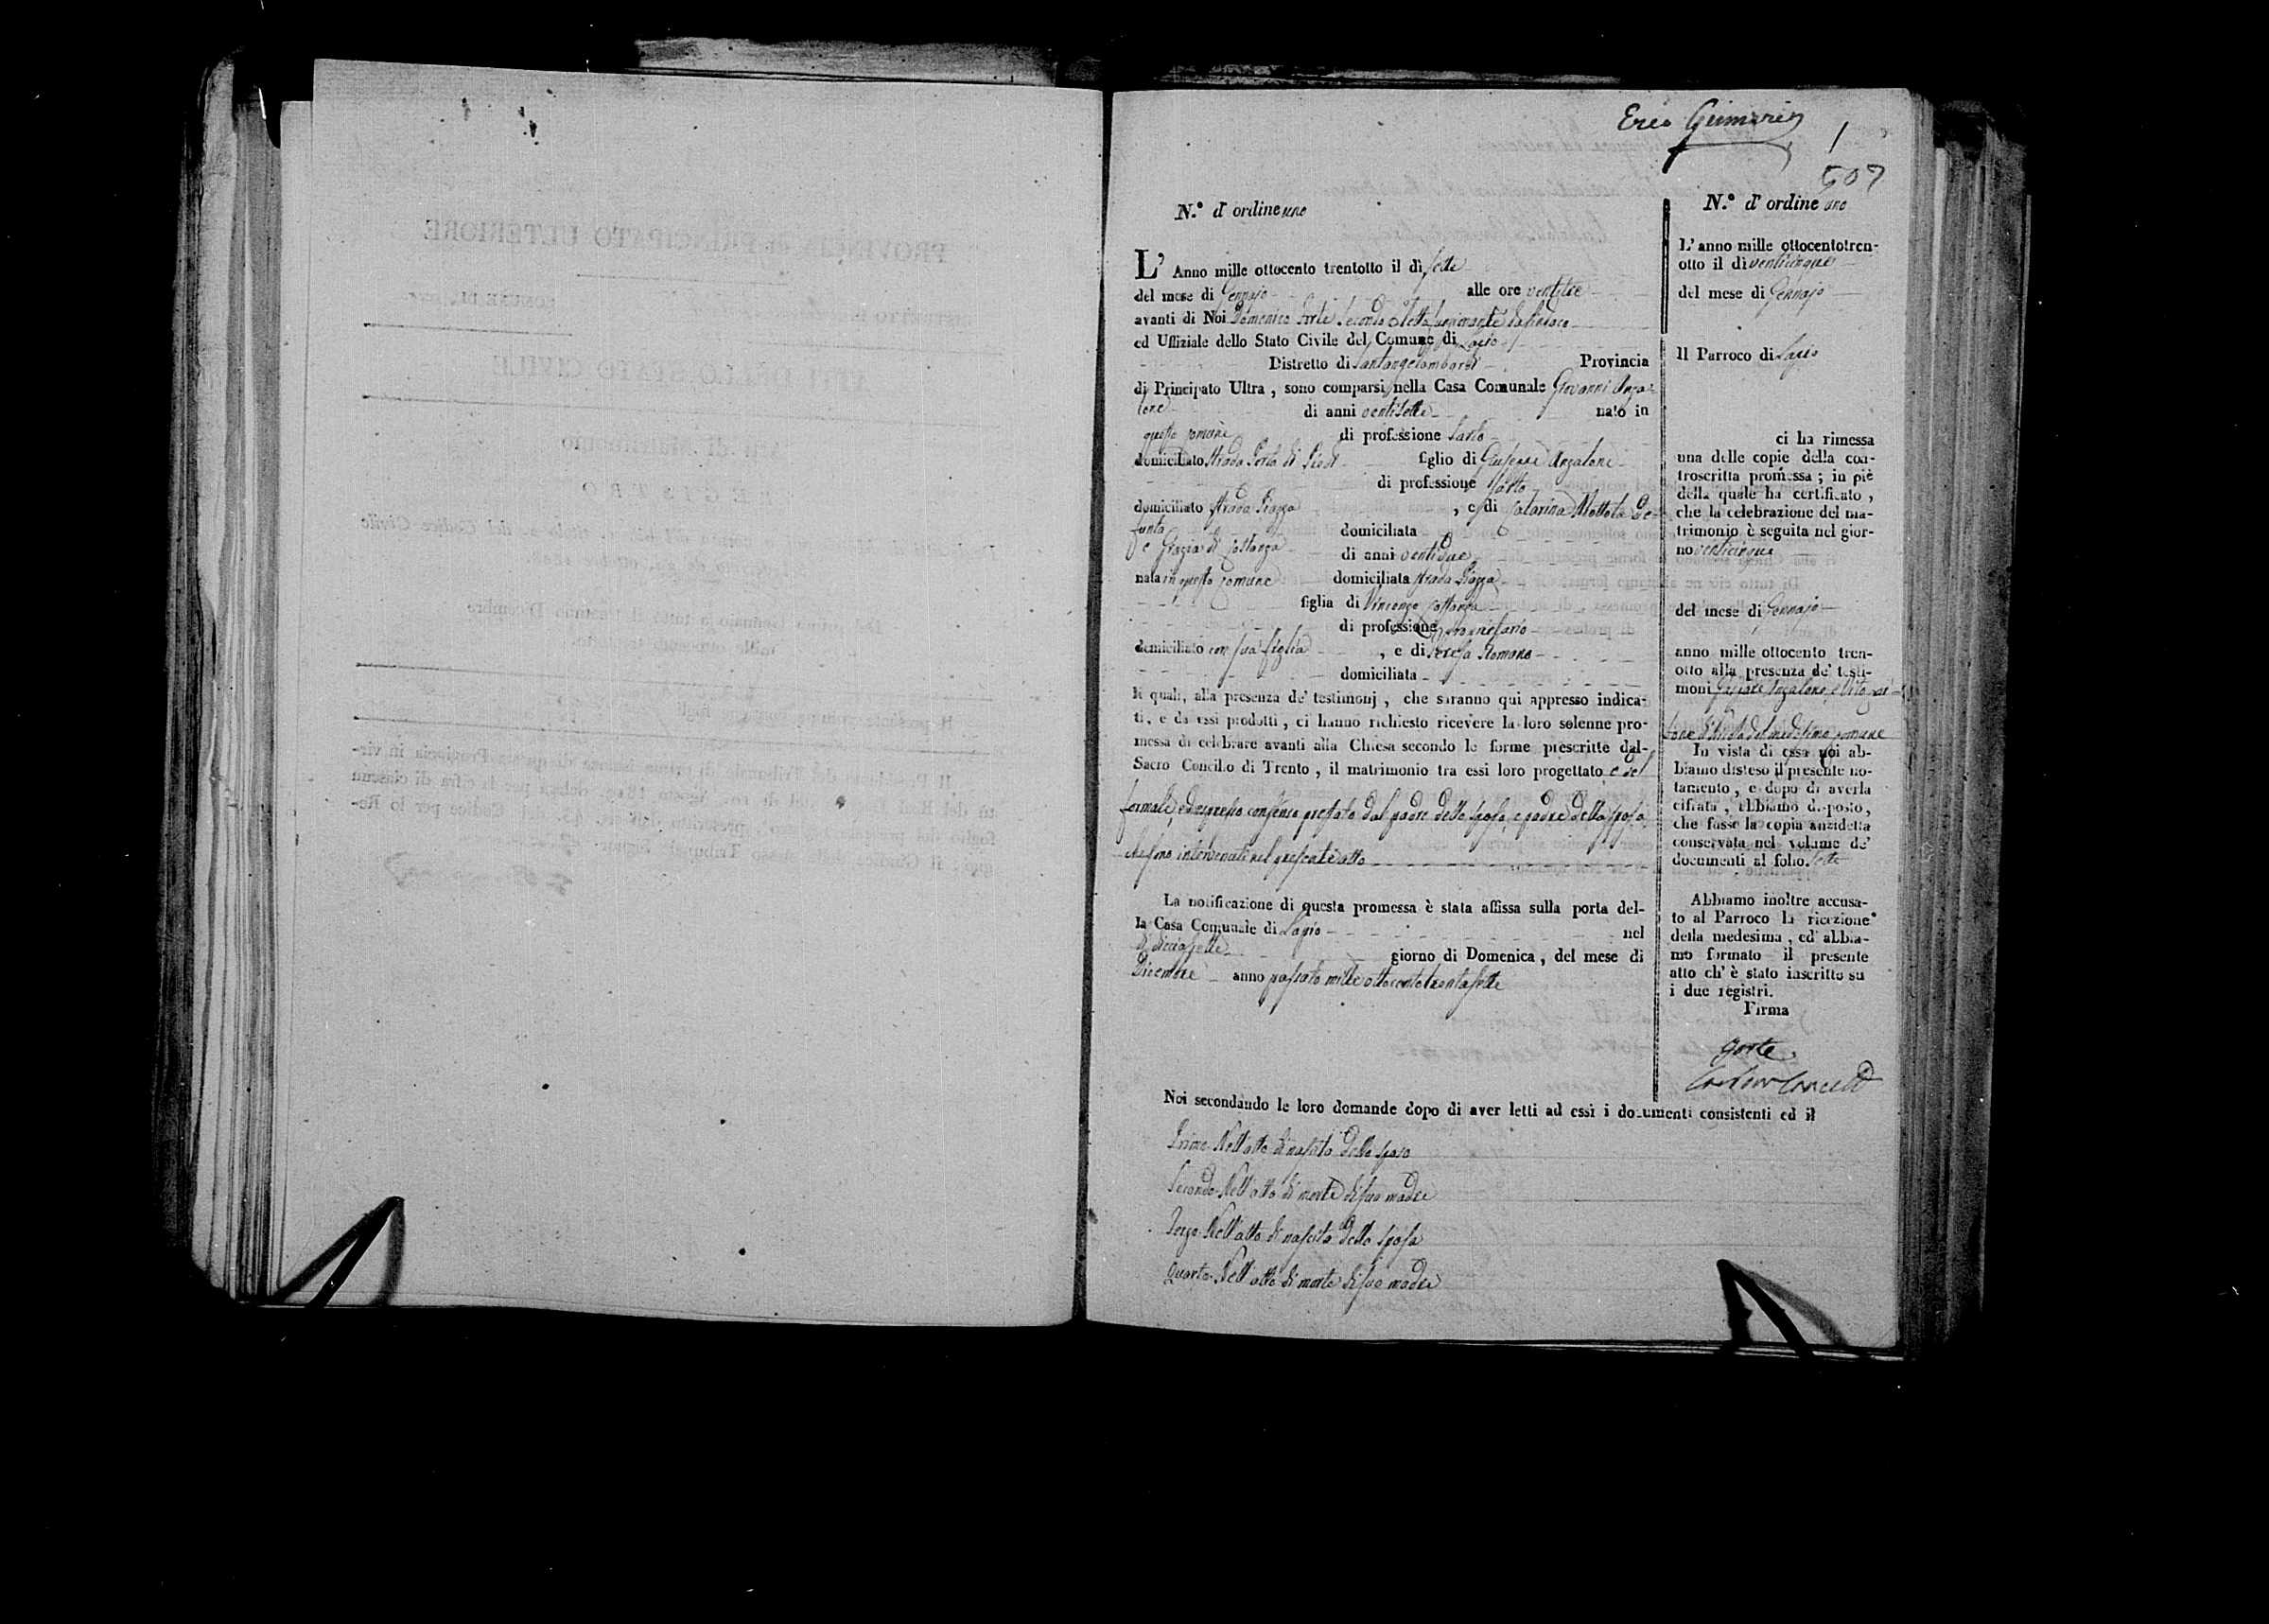 1
507
N.º d'ordine uno
L'Anno mille ottocento trentotto il dì sette
del mese di Gennajo alle ore ventitre
avanti di Noi Domenico Forte Secondo Eletto funzionante da Sindaco
ed Uffiziale dello Stato Civile del Comune di Lapio
Distretto di Santangelombardi Provincia
di Principato Ultra, sono comparsi nella Casa Comunale Giovanni Anza-
lone di anni ventisette nato in
questo comune di professione Sarto
domiciliato strada Porta di Piedi figlio di Giuseppe Anzalone
di professione sarto
domiciliato strada Piazza, e di Catarina Mottola de-
funta domiciliata
e Grazia di Costanza di anni ventidue
nata in questo comune domiciliata strada Piazza
figlia di Vincenzo Costanza
di professione proprietario
domiciliato con sua figlia, e di Teresa Romano
domiciliata
li quali, alla presenza de' testimonj, che saranno qui appresso indica-
ti, e da essi prodotti, ci hanno richiesto ricevere la loro solenne pro-
messa di celebrare avanti alla Chiesa secondo le forme prescritte dal
Sacro Concilio di Trento, il matrimonio tra essi loro progettato e del
formale, ed espresso consenso prestato dal padre dello sposo, e padre della sposa,
che sono intervenuti nel presente atto
La notificazione di questa promessa è stata affissa sulla porta del-
la Casa Comunale di Lapio nel
dì diciassette giorno di Domenica, del mese di
Dicembre anno passato mille ottocento trentasette
N.º d'ordine uno
L'anno mille ottocentotren-
otto il dì venticinque
del mese di Gennajo
Il Parroco di Lapio
ci ha rimessa
una delle copie della con-
troscritta promessa; in piè
della quale ha certificato,
che la celebrazione del ma-
trimonio è seguita nel gior-
no venticinque
del mese di Gennajo
anno mille ottocento tren-
otto alla presenza de' testi-
moni Anzalone, e Vito
del medesimo comune
In vista di essa noi ab-
biamo disteso il presente no-
tamento, e dopo di averla
cifrata, abbiamo disposto,
che fosse la copia anzidetta
conservata nel volume de'
documenti al folio sette
Abbiamo inoltre accusa-
to al Parroco la ricezione
della medesima, ed abbia-
mo formato il presente
atto ch' è stato inscritto su
i due registri.
Firma
Forte
Noi secondando le loro domande dopo di aver letti ad essi i documenti consistenti ed il
Primo Nell'atto di nascita dello sposo
Secondo Nell'atto di morte di sua madre
Terzo Nell'atto di nascita della sposa
Quarto Nell'atto di morte di sua madre